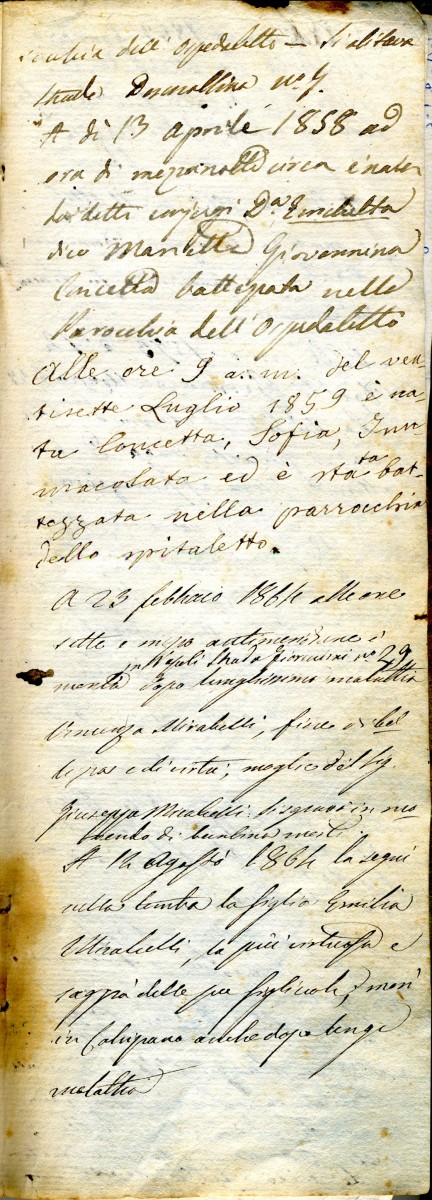 dell' Ospedaletto — Si abitava
Strada n.º
A dì 13 aprile 1858 ad
ora di mezzanotte circa è nata
da detti conjugi D.ª Enrichetta
dico Marietta Giovannina
Concetta battezzata nella
Parocchia dell'Ospedaletto
Alle ore 9 a. m. del ven-
tisette Luglio 1859 è na-
ta Concetta, Sofia, Im-
macolata ed è stata bat-
tezzata nella parrocchia
dello spitaletto.
A 23 febbraio 1864 alle ore
sette e mezo antimeridiane è
in Napoli Strada Fiorentini n.º 29
morta dopo lunghissima malattia
Mirabelli, fiore di bel-
e di virtù; moglie del Sig.
Giuseppe Mirabelli. Si sgravò in mo-
rendo di bambina
A 12 Agosto 1864 la seguì
nella tomba la figlia Emilia
Mirabelli, la più virtuosa e
saggia delle sue figliuole, e morì
in Calvizzano anche dopo lunga
malattia